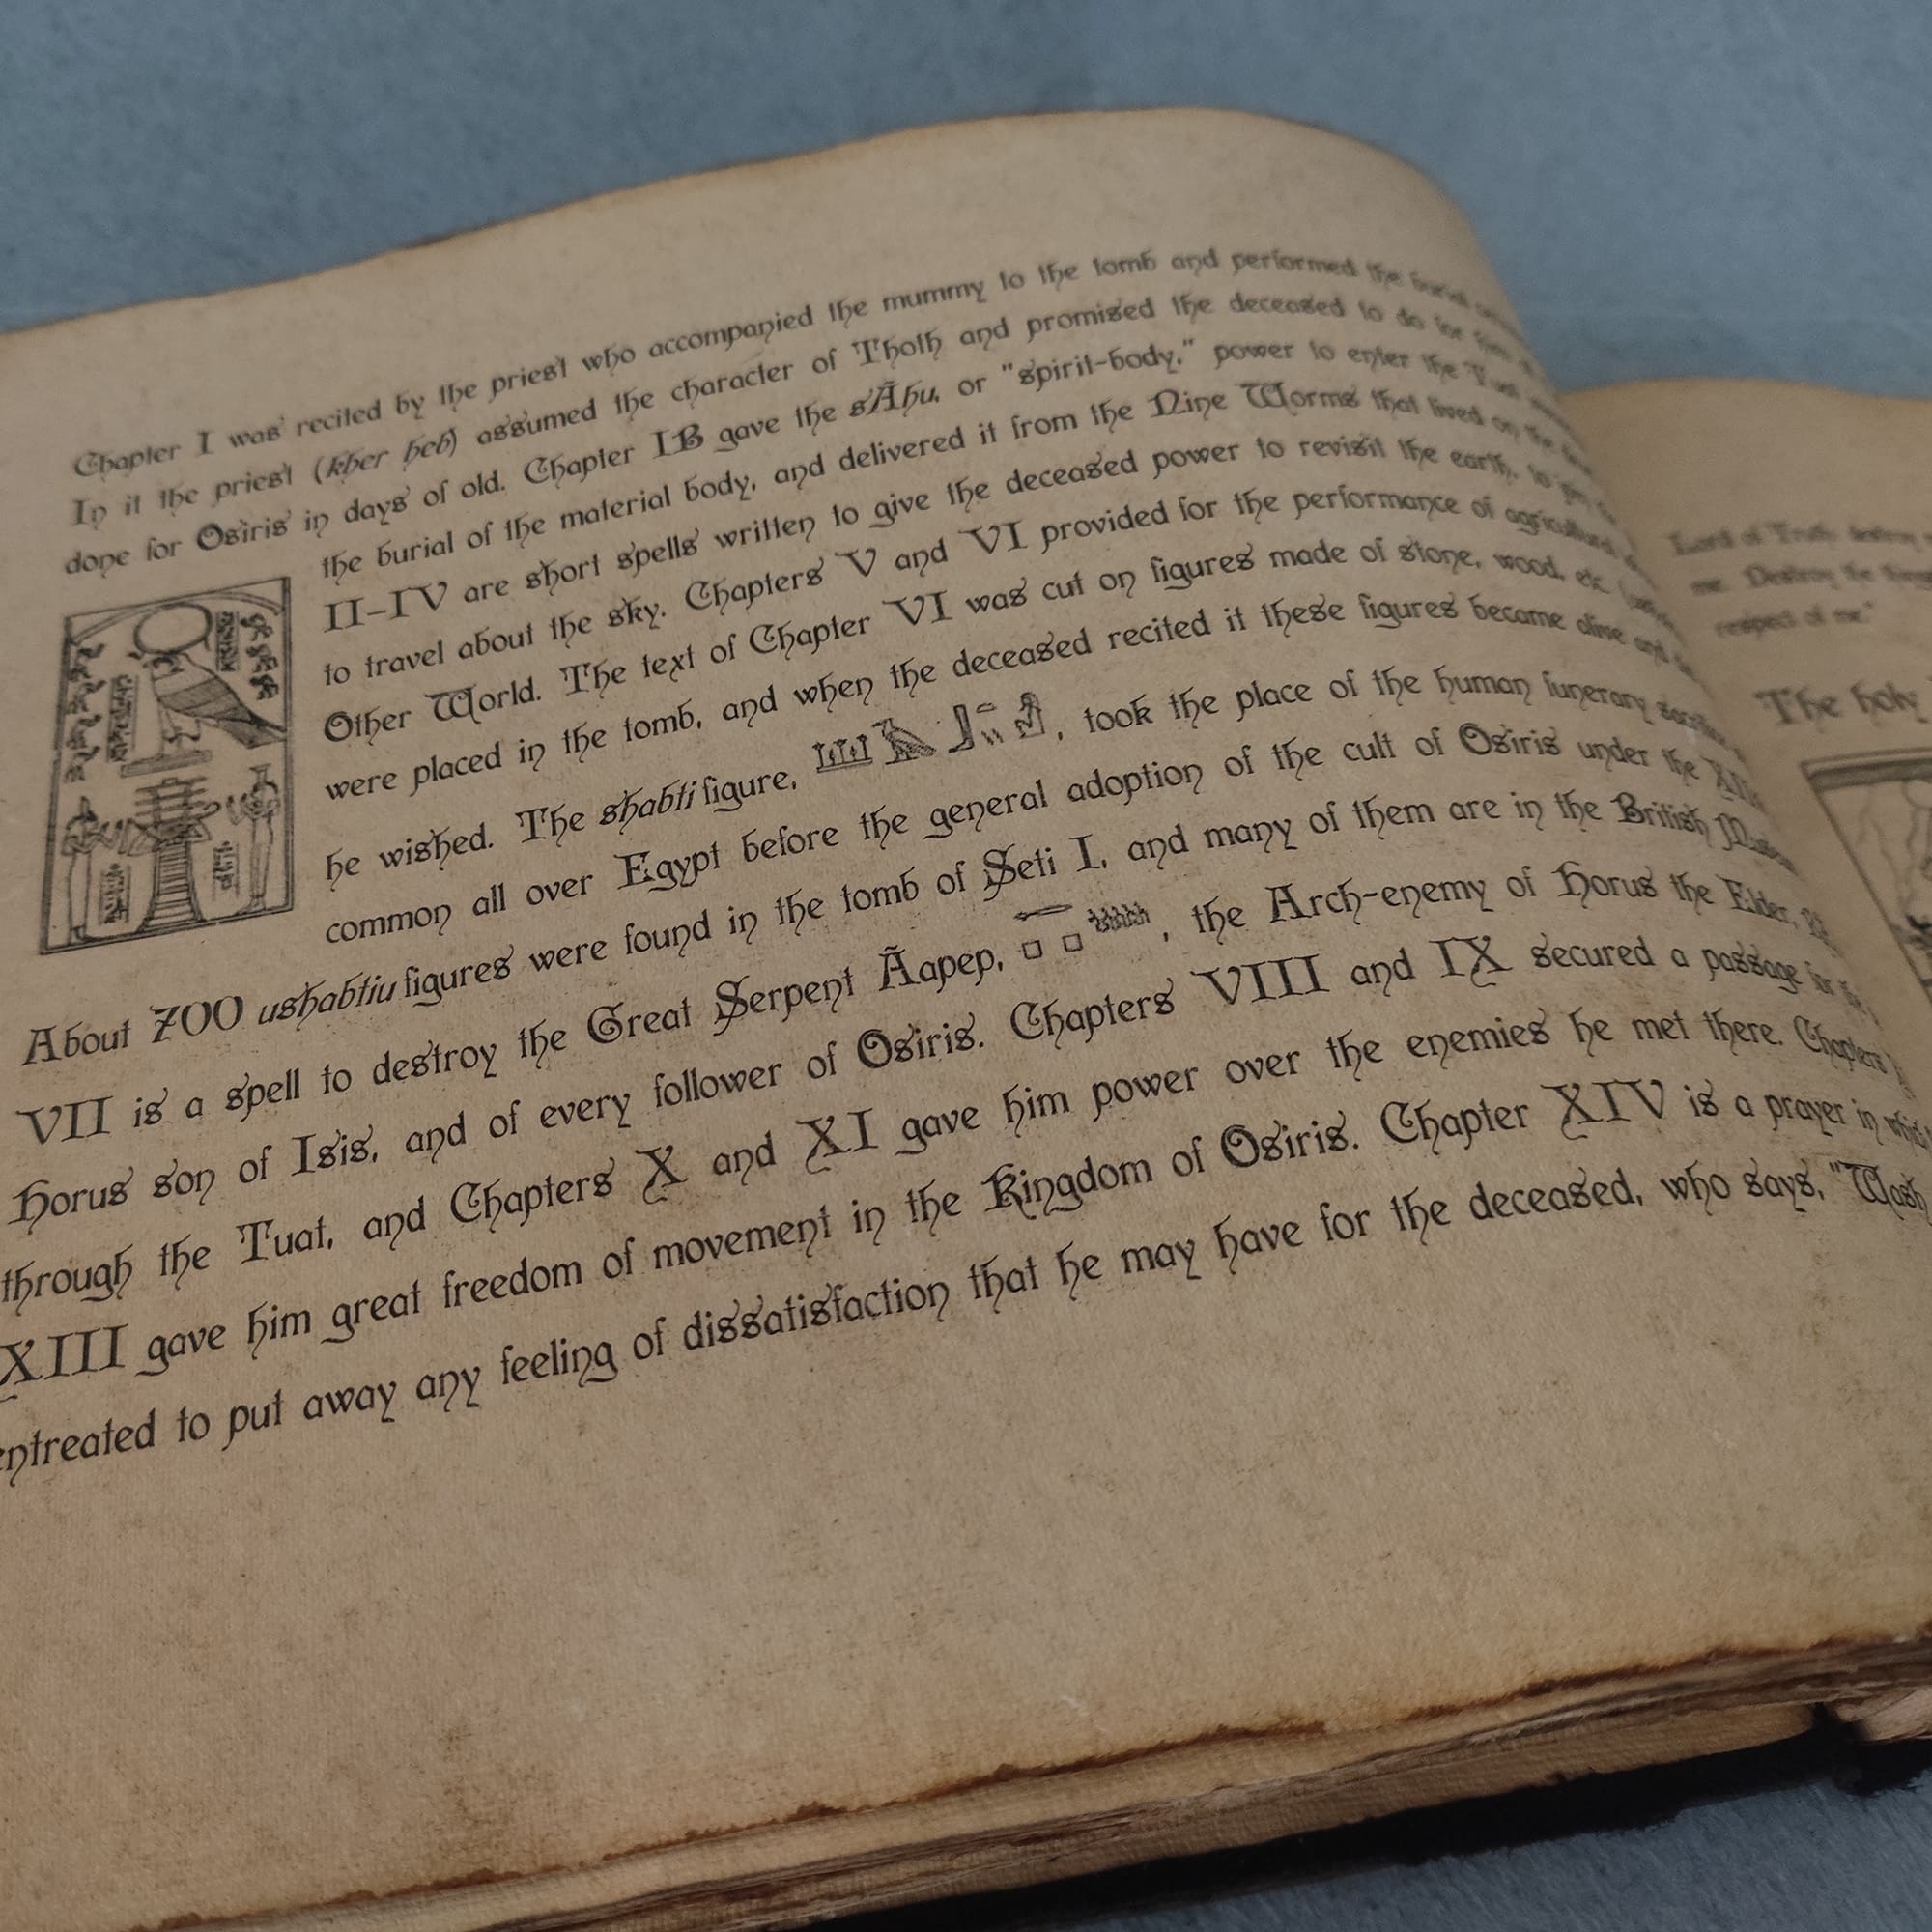 Chapter I was recited by the priest who accompanied the mummy to the tomb and performed the burial
In it the priest (kher heb) assumed the character of Thoth and promised the deceased to do for him
done for Osiris in days of old. Chapter IB gave the sĀhu, or "spirit-body," power to enter the Tuat
the burial of the material body, and delivered it from the Nine Worms that lived on the
II-IV are short spells written to give the deceased power to revisit the earth, to
to travel about the sky. Chapters V and VI provided for the performance of agricultural
Other World. The text of Chapter VI was cut on figures made of stone, wood, etc.
were placed in the tomb, and when the deceased recited it these figures became alive and
he wished. The shabti figure, , took the place of the human funerary
common all over Egypt before the general adoption of the cult of Osiris under the
About 700 ushabtiu figures were found in the tomb of Seti I, and many of them are in the British
VII is a spell to destroy the Great Serpent Āapep, , the Arch-enemy of Horus the Elder,
Horus son of Isis, and of every follower of Osiris. Chapters VIII and IX secured a passage for
through the Tuat, and Chapters X and XI gave him power over the enemies he met there. Chapters
XIII gave him great freedom of movement in the Kingdom of Osiris. Chapter XIV is a prayer in which
entreated to put away any feeling of dissatisfaction that he may have for the deceased, who says, "Wash
Lord of Truth
me. Destroy the
respect of me."
The holy